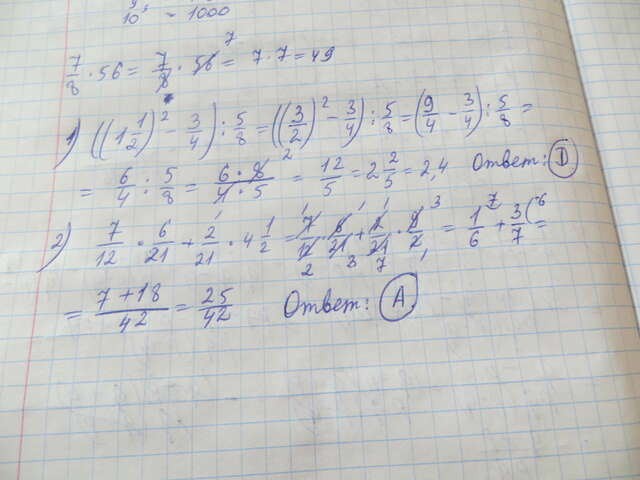 9/10³ = 1000
7/8 · 56 = 7/8 · 56 ⁷ = 7 · 7 = 49
1) ((1 1/2)² - 3/4) : 5/8 = ((3/2)² - 3/4) : 5/8 = (9/4 - 3/4) : 5/8 =
= 6/4 : 5/8 = 6 · 8 ²/4 · 5 = 12/5 = 2 2/5 = 2,4 Ответ: D
2) 7/12 · 6/21 + 2/21 · 4 1/2 = 7/12 · 6/21 + 2/21 · 9/2 = 1/6 + 3/7 =
= 7 + 18/42 = 25/42 Ответ: A